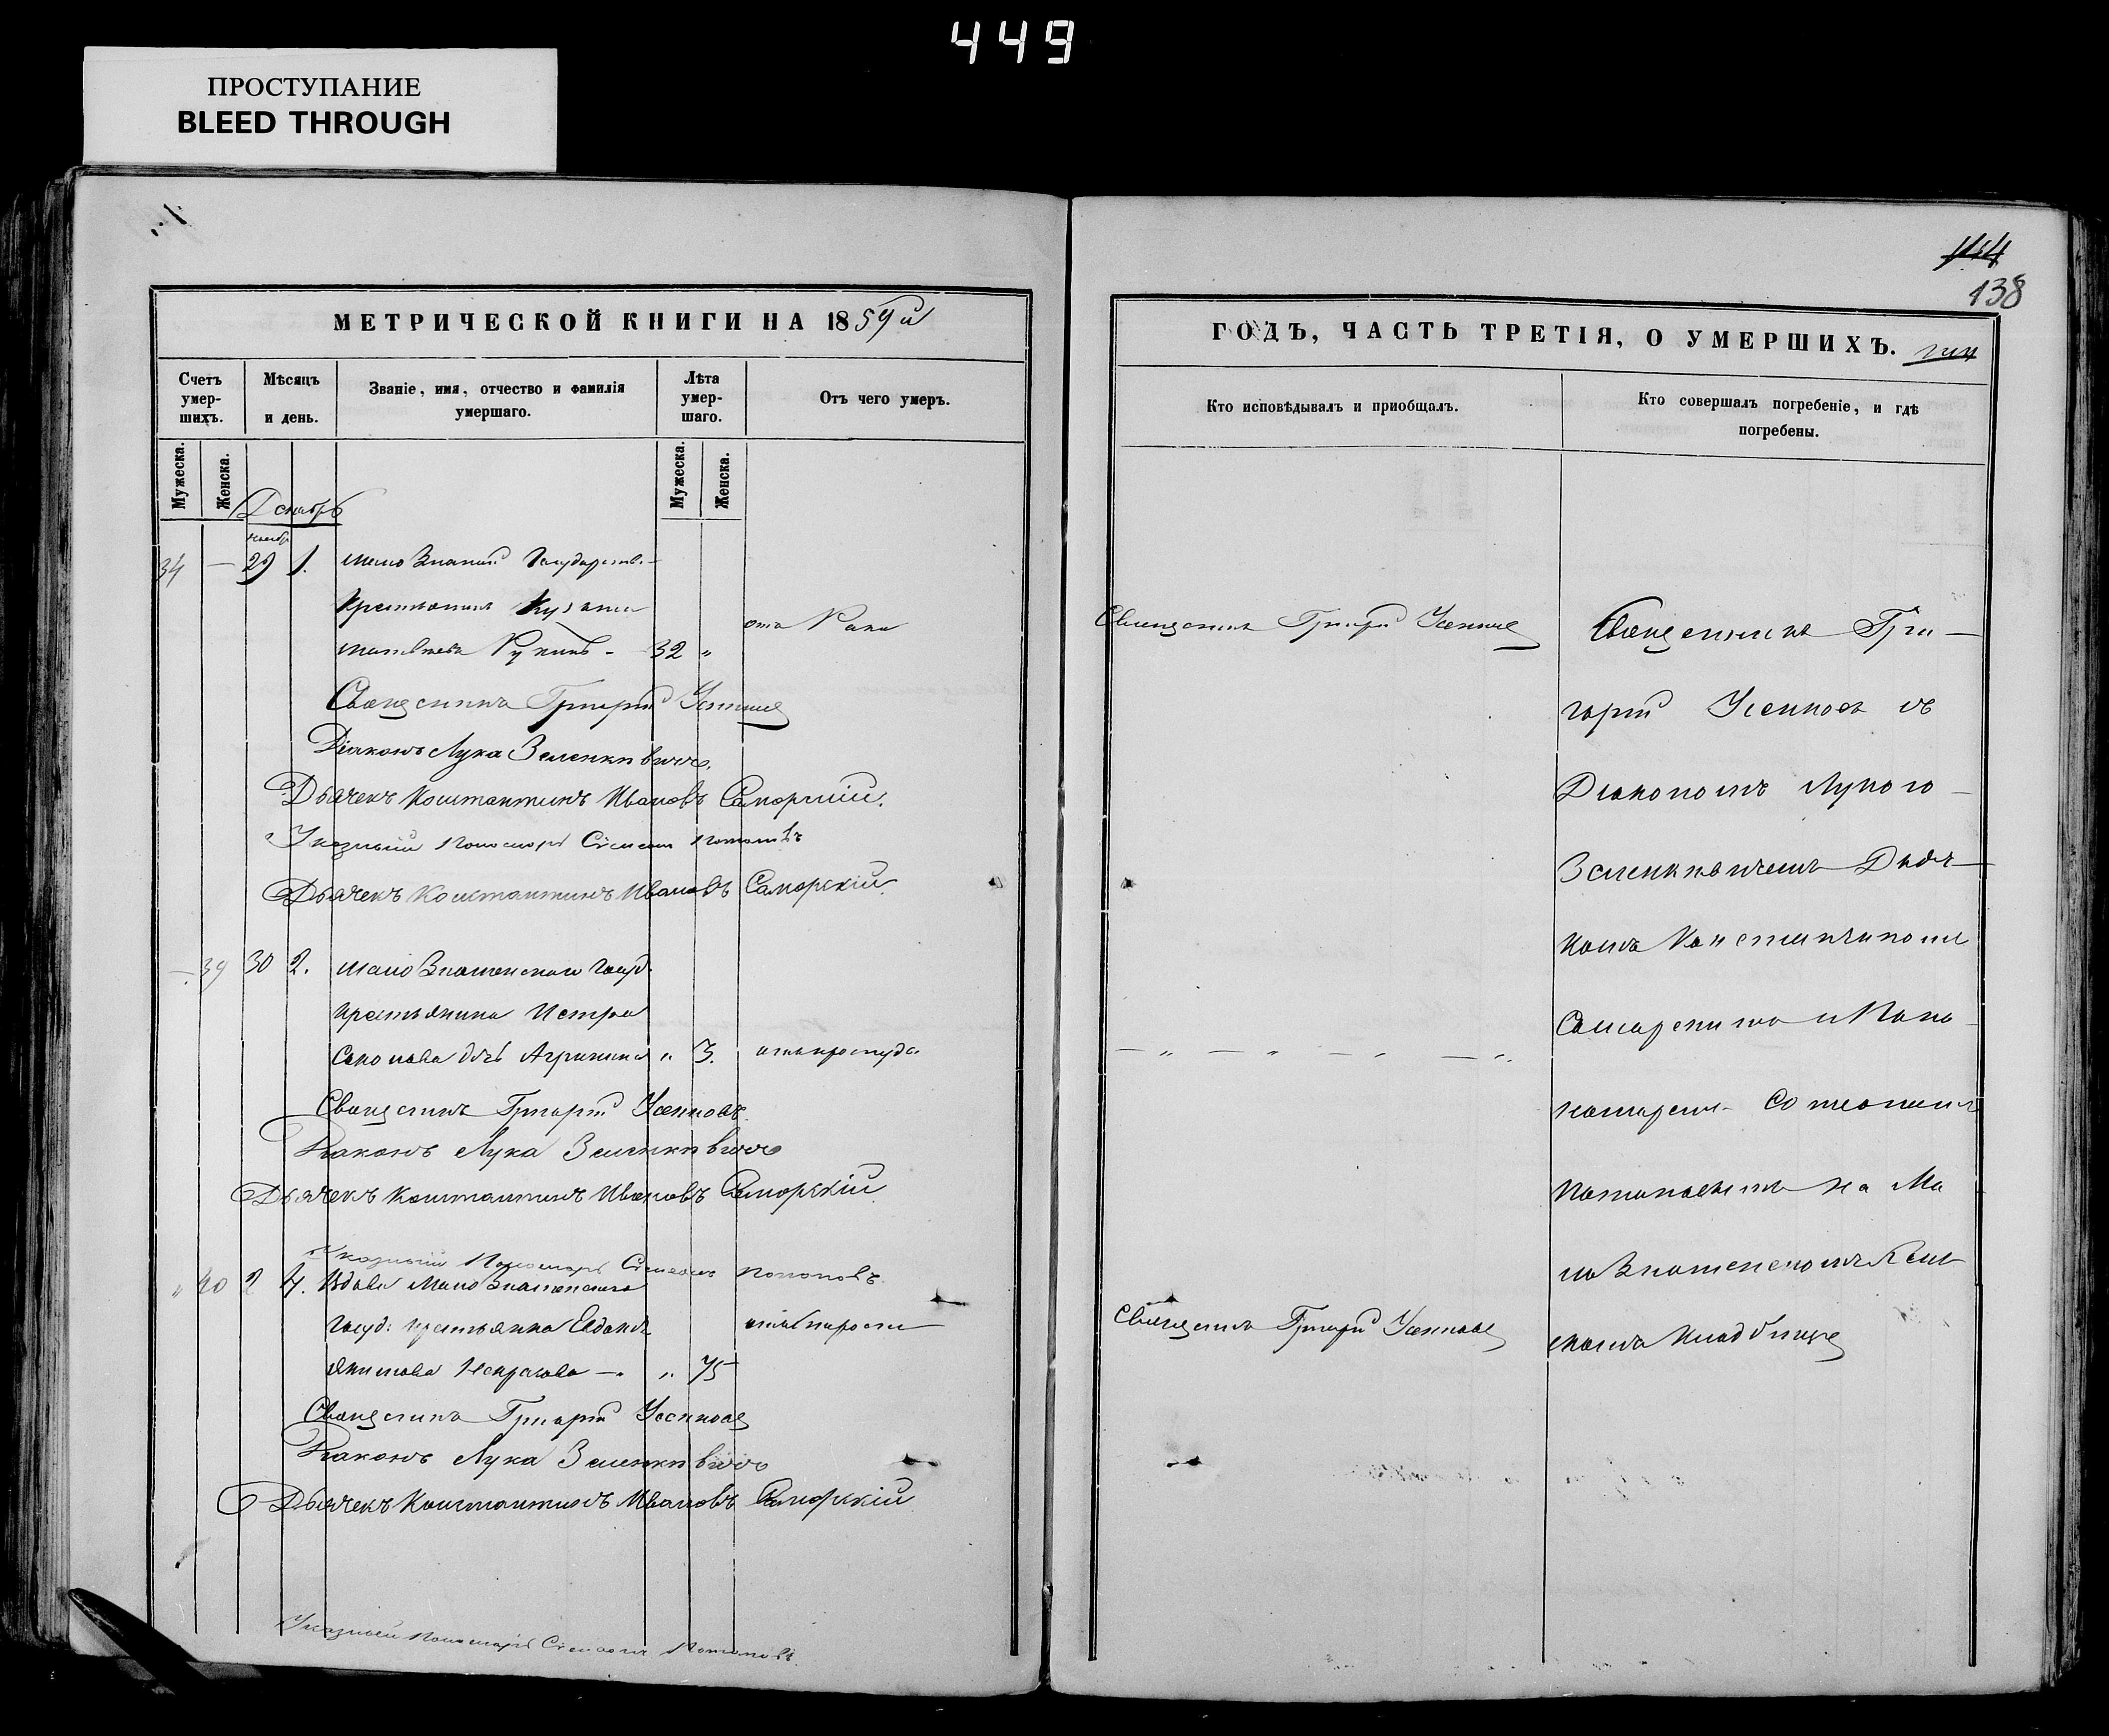 449
ПРОСТУПАНИЕ
BLEED THROUGH
144
138
МЕТРИЧЕСКОЙ КНИГИ НА 1859й
Счетъ умер-шихъ.
Мѣсяцъ и день.
Званіе, имя, отчество и фамилія умершаго.
Лѣта умер-шаго.
Отъ чего умеръ.
Мужеска.
Женска.
Мужеска.
Женска.
Декабрь
34 — 29 1. мало Знамен. Государств.
Крестьянинъ Кузьма
32 „
Священникъ Григорій Усенков
Діаконъ Лука Зеленкѣвичъ
Дьячекъ Константинъ Ивановъ Саморскій.
Указный Пономарь Стефанъ Потаповъ
Дьячекъ Константинъ Ивановъ Саморскій.
— 39 30 2. мало Знаменскаго госуд.
крестьянина Петра
дочь Агрипина „ 3. отъ простуды
Священникъ Григорій Усенковъ
Діаконъ Лука Зеленкѣвичъ
Дьячекъ Константинъ Ивановъ Саморскій
Указный Пономарь Стефанъ Потаповъ
„ 40 2 4. Вдова Мало Знаменскаго
госуд: крестьянка Евдокія
Якимова Некрасова — „ 75
отъ старости
Священникъ Григорій Усенков
Діаконъ Лука Зеленкѣвичъ
Дьячекъ Константинъ Ивановъ Саморскій
Указный Пономарь Стефанъ Потаповъ
ГОДЪ, ЧАСТЬ ТРЕТІЯ, О УМЕРШИХЪ.
Кто исповѣдывалъ и пріобщалъ.
Кто совершалъ погребеніе, и гдѣ погребены.
Священникъ Григорій Усенков
Священникъ Гри—
горій Усенковъ съ
Діакономъ Лукою
Зеленкѣвичемъ Дьяч—
комъ Константиномъ
и Поно
номаремъ Стефаномъ
Потаповымъ на Ма
ло Знаменскомъ Сель
скомъ кладбище
— „ — „ — „ — „
Священникъ Григорій Усенков